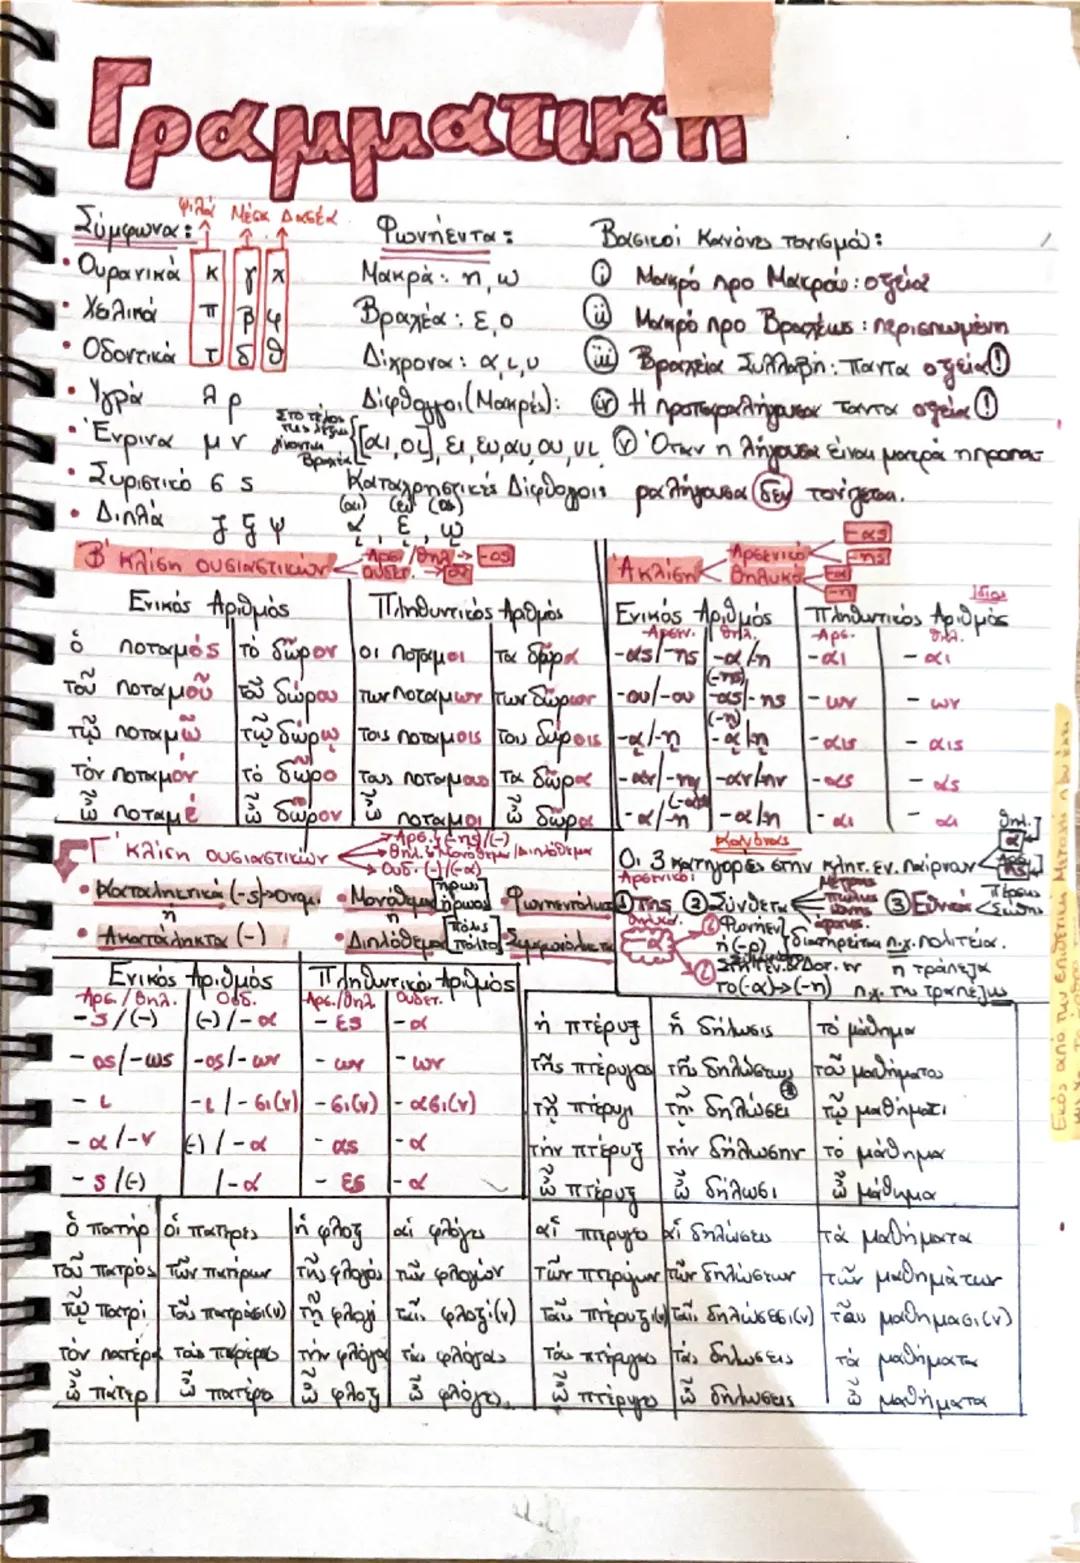 Γραμματική
Σύμφωνα: Ψιλά Μέσα Δασέα
• Ουρανικά κ γ χ
• Χειλικά π β φ
• Οδοντικά τ δ θ
• Υγρά λ ρ
• Ένρινα μ ν
• Συριστικό σ ς
• Διπλά ζ ξ ψ
Φωνήεντα:
Μακρά: η, ω
Βραχέα: ε, ο
Δίχρονα: α, ι, υ
Δίφθογγοι (Μακρές):
Στο τέλος της λέξης γίνονται Βραχέα [αι, οι], ει, ευ, αυ, ου, υι
Καταχρηστικές Δίφθογγοι
(αι) (ει) (ωι)
ᾳ, ῃ, ῳ
Βασικοί Κανόνες τονισμού:
(i) Μακρό προ Μακρού: οξεία
(ii) Μακρό προ Βραχέως: περισπωμένη
(iii) Βραχεία Συλλαβή: Πάντα οξεία!
(iv) Η προπαραλήγουσα πάντα οξεία!
(v) Όταν η λήγουσα είναι μακρά η προπα-
ραλήγουσα δεν τονίζεται.
Β' κλίση ουσιαστικών Αρσ./Θηλ → -ος
Ουδετ. → -ον
Ενικός Αριθμός Πληθυντικός Αριθμός
ὁ ποταμός τὸ δῶρον οι ποταμοι τα δῶρα
τοῦ ποταμοῦ τοῦ δώρου των ποταμων των δώρων
τῷ ποταμῷ τῷ δώρῳ τοις ποταμοις τοις δώροις
τὸν ποταμόν τὸ δῶρο τους ποταμους τα δῶρα
ὦ ποταμέ ὦ δῶρον ὦ ποταμοι ὦ δῶρα
Α κλίση Αρσενικό -ας -ης
Θηλυκό -α -η
Ενικός Αριθμός Πληθυντικός Αριθμός
Ίδιοι
Αρσεν. Θηλ. Αρσ. Θηλ.
-ας/-ης -α/-η -αι -αι
-ου/-ου -ας/-ης (-ης) -ων -ων
-ᾳ/-ῃ -ᾳ/-ῃ (-ῃ) -αις -αις
-αν/-ην -αν/-ην -ας -ας
-α/-η -α/-η -αι -αι
Κανόνας
Οι 3 κατηγορίες στην κλητ. εν. παίρνουν Θηλ. α
Αρσενικοί
① της ② Σύνθετα ③ Εθνικά Πέρσης Σκύθης
Μέτρης πώλης
Θηλυκό. -α ① Φωνήεν ή (-ρ) διατηρείται π.χ. πολιτεία.
② Στη Γεν. & Δοτ. εν η τράπεζα
το (-α) → (-η) π.χ. της τραπέζης
Γ' κλίση ουσιαστικών Αρσ. (-ης)/(-)
Θηλ. Μονόθεμα / Διπλόθεμα
Ουδ. (-)/(-α)
• Καταληκτικά (-ς) → ονομ. • Μονόθεμα ήρως ήρωος • Φωνηεντόληκτα
ή
• Ακατάληκτα (-) • Διπλόθεμα πόλις Συμφωνόληκτα
Ενικός Αριθμός Πληθυντικός Αριθμός
Αρσ./Θηλ. Ουδ. Αρσ./Θηλ Ουδετ.
-ς/(-) (-)/-α -ες -α
-ος/-ως -ος/-ων -ων -ων
-ι -ι/-σι(ν) -σι(ν) -ασι(ν)
-α/-ν (-)/-α -ας -α
-ς/(-) /-α -ες -α
ἡ πτέρυξ ἡ δήλωσις τὸ μάθημα
τῆς πτέρυγος τῆς δηλώσεως τοῦ μαθήματος
τῇ πτέρυγι τῇ δηλώσει τῷ μαθήματι
τὴν πτέρυγα τὴν δήλωσην τὸ μάθημα
ὦ πτέρυξ ὦ δήλωσι ὦ μάθημα
ὁ πατήρ οἱ πατερες ἡ φλοξ αἱ φλόγες αἱ πτέρυγες αἱ δηλώσεις τὰ μαθήματα
τοῦ πατρὸς τῶν πατέρων τῆς φλογός τῶν φλογών τῶν πτερύγων τῶν δηλώσεων τῶν μαθημάτων
τῷ πατρὶ τοῖς πατράσι(ν) τῇ φλογί ταῖς φλοξί(ν) ταῖς πτέρυξι(ν) ταῖς δηλώσεσι(ν) τοῖς μαθήμασι(ν)
τὸν πατέρα τοὺς πατέρας τὴν φλόγα τὰς φλόγας τὰς πτέρυγας τὰς δηλώσεις τὰ μαθήματα
ὦ πάτερ ὦ πατέρε ὦ φλοξ ὦ φλόγες ὦ πτέρυγες ὦ δηλώσεις ὦ μαθήματα
Εκτός από την επιθετική Μετοχή που έχει